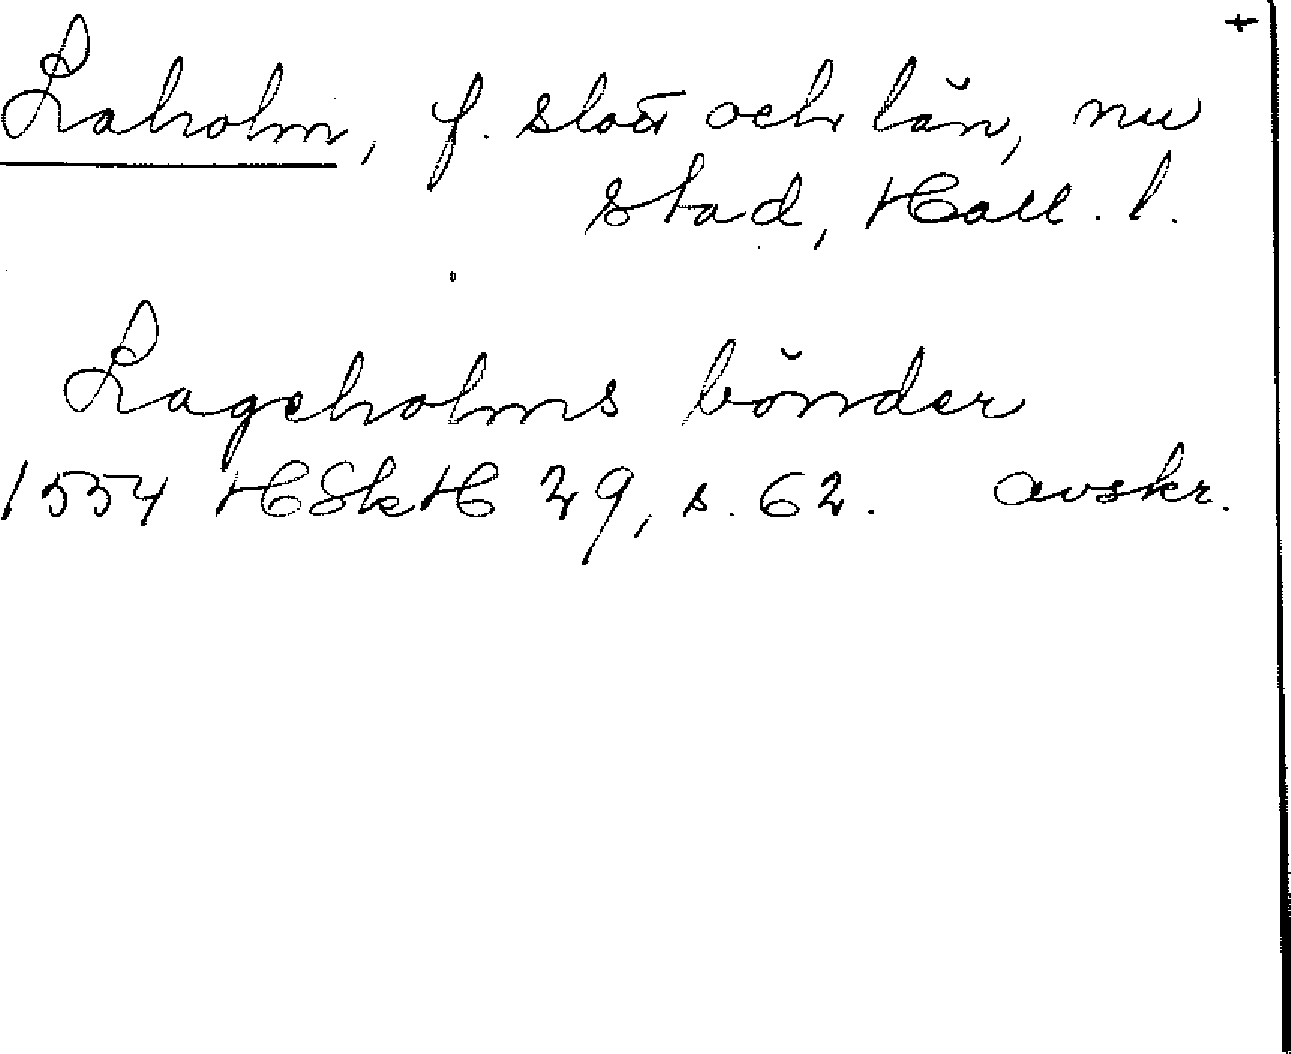 +
Laholm, f. slott och län, nu
stad, Hall. l.
Lageholms bönder
1554 HSkH 29, s. 62. avskr.